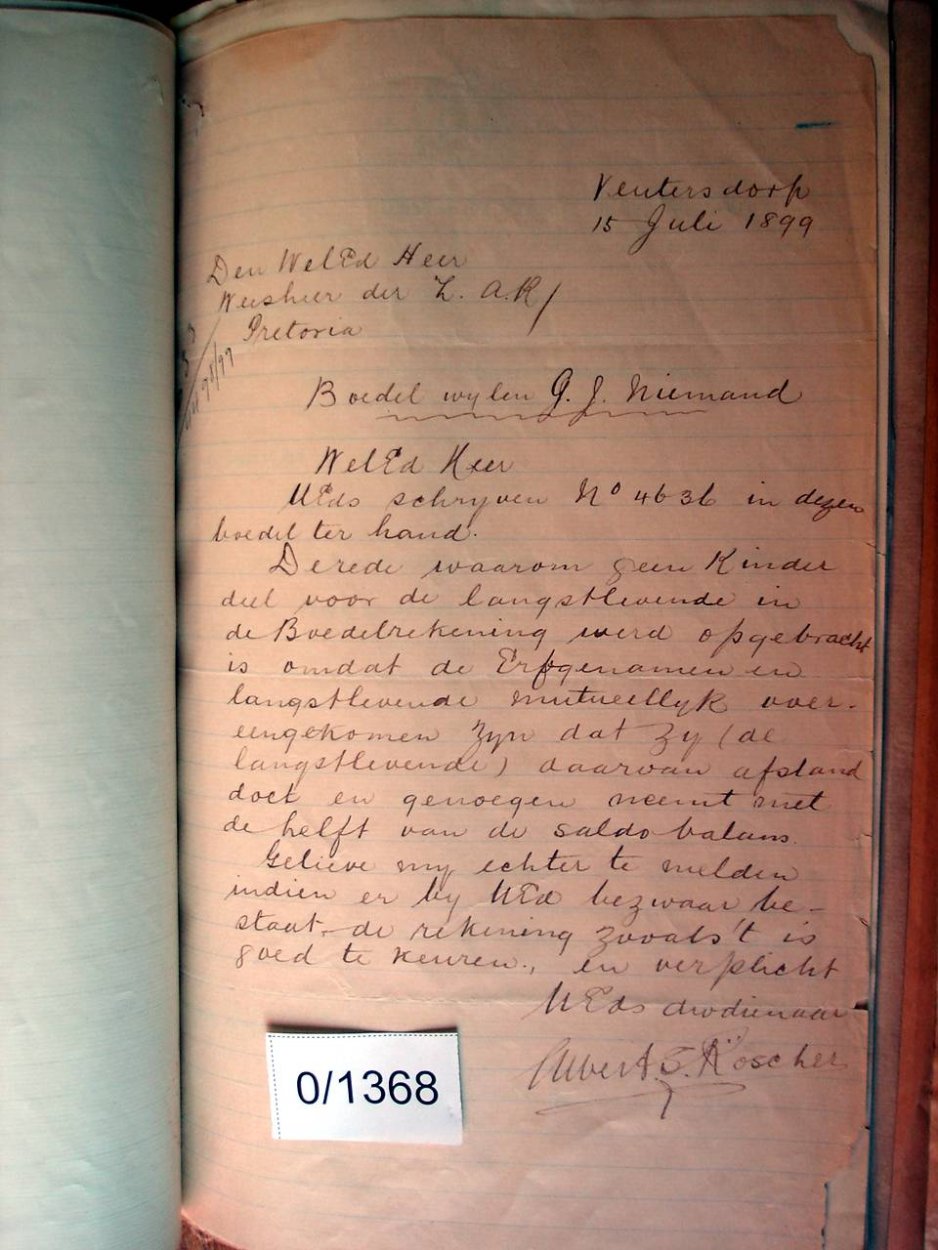 Ventersdorp
15 Juli 1899
Den WelEd Heer
Weesheer der Z. A. R/
Pretoria
98/99
Boedel wylen G. J. Niemand
WelEd Heer
UEds schryven No 4636 in dezen
boedel ter hand.
De rede waarom geen Kinder
deel voor de langstlevende in
de Boedelrekening werd opgebracht
is omdat de Erfgenamen en
langstlevende mutueellyk over-
eengekomen zyn dat zy (de
langstlevende) daarvan afstand
doet en genoegen neemt met
de helft van de saldo balans.
Gelieve my echter te melden
indien er by UEd bezwaar be-
staat de rekening zooals 't is
goed te keuren., en verplicht
UEds dwdienaar
Albert S. Roscher
0/1368